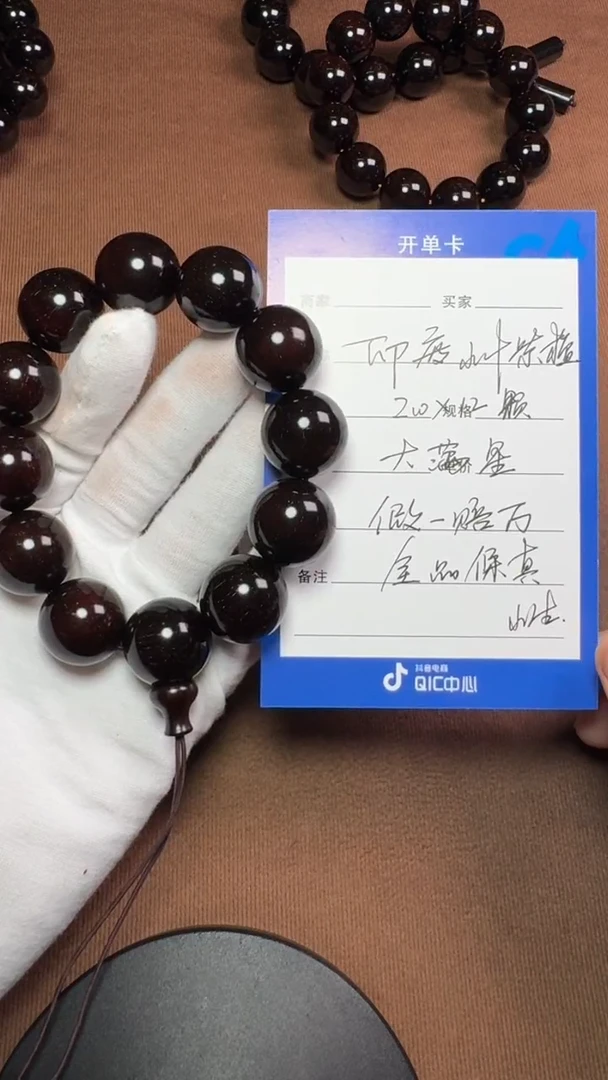 开单卡
买家
印度小叶紫檀
2.0 规格 颗
大满星
假一赔万
备注 全品保真
抖音电商
QIC中心